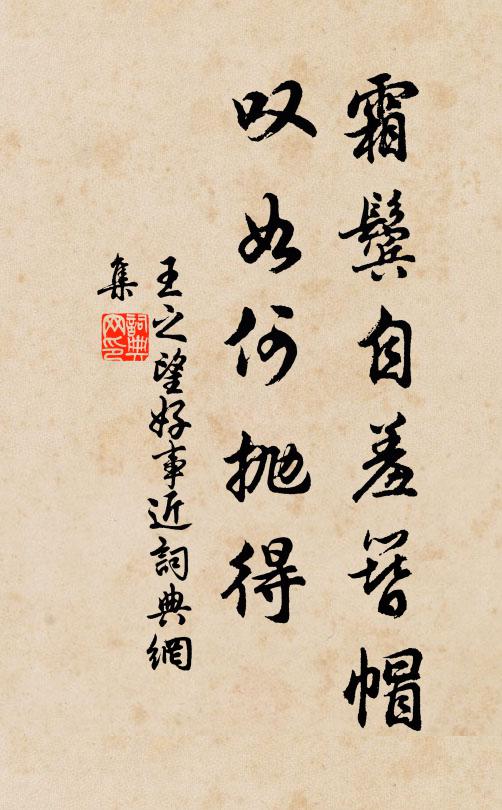 霜鬢自羞簪帽
叹如何抛得
王之望好事近詞典網
集
詞典
网印